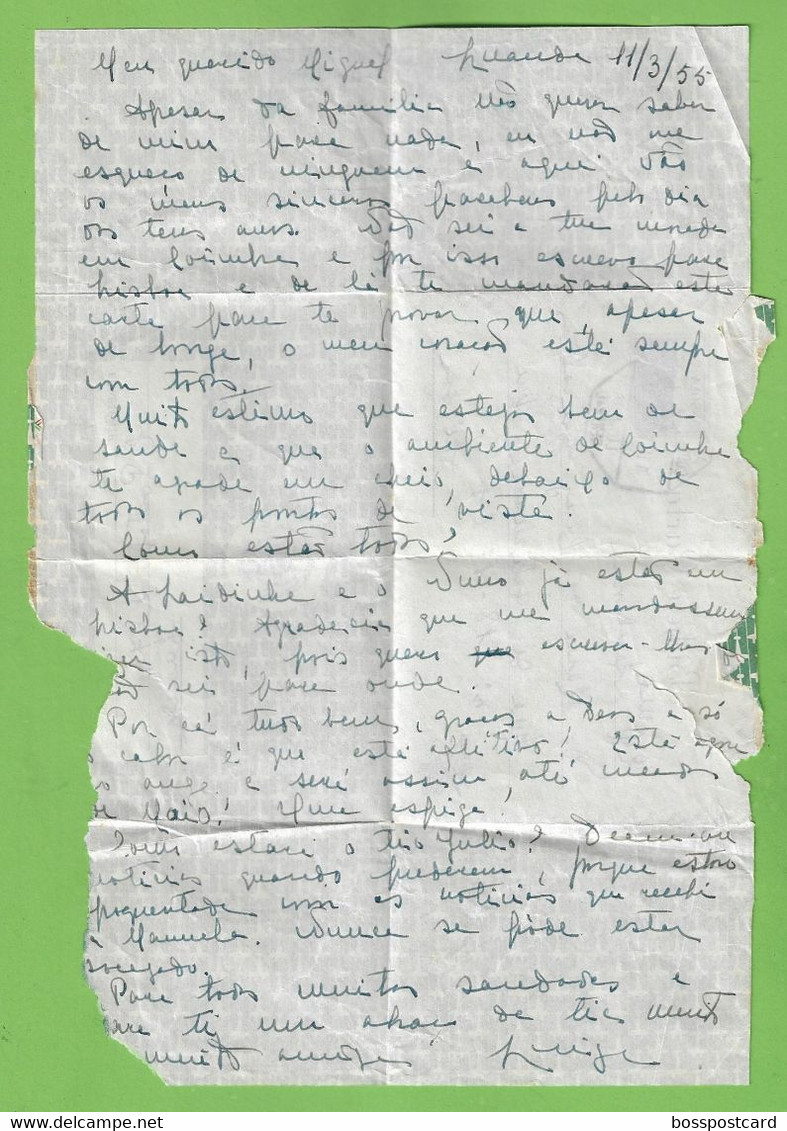 Meu querido Miguel Luanda 11/3/55
Apesar da familia não querer saber
de mim para nada, eu não me
esqueço de ninguem e aqui vão
os meus sinceros parabens pelo dia
dos teus anos. Não sei a tua morada
em Coimbra e por isso escrevo para
Lisboa e de lá te mandarão esta
carta para te provar que, apesar
de longe, o meu coração está sempre
com todos.
Muito estimo que estejas bem de
saude e que o ambiente de Coimbra
te agrade em cheio, debaixo de
todos os pontos de vista.
Como estão todos?
A Luidinha e o Nuno já estão em
Lisboa? Agradecia que me mandassem
isto, pois quero escrever-lhes
sei para onde.
Por cá tudo bem, graças a Deus e só
o calor é que está aflitivo! Está agora
no auge e será assim, até meados
de Maio! Que espiga!
Como estará o tio Julio? Deem-me
noticias quando puderem, porque estou
com as noticias que recebi
a Manuela. Nunca se póde estar
socegado.
Para todos muitas saudades e
para ti um abraço da tia muito
muito amiga